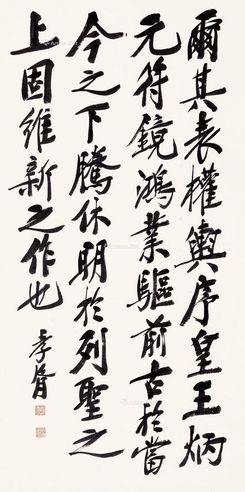 爾其表權輿序皇王炳
元符鏡鴻業驅前古於當
今之下騰休明於列聖之
上固維新之作也
孝胥